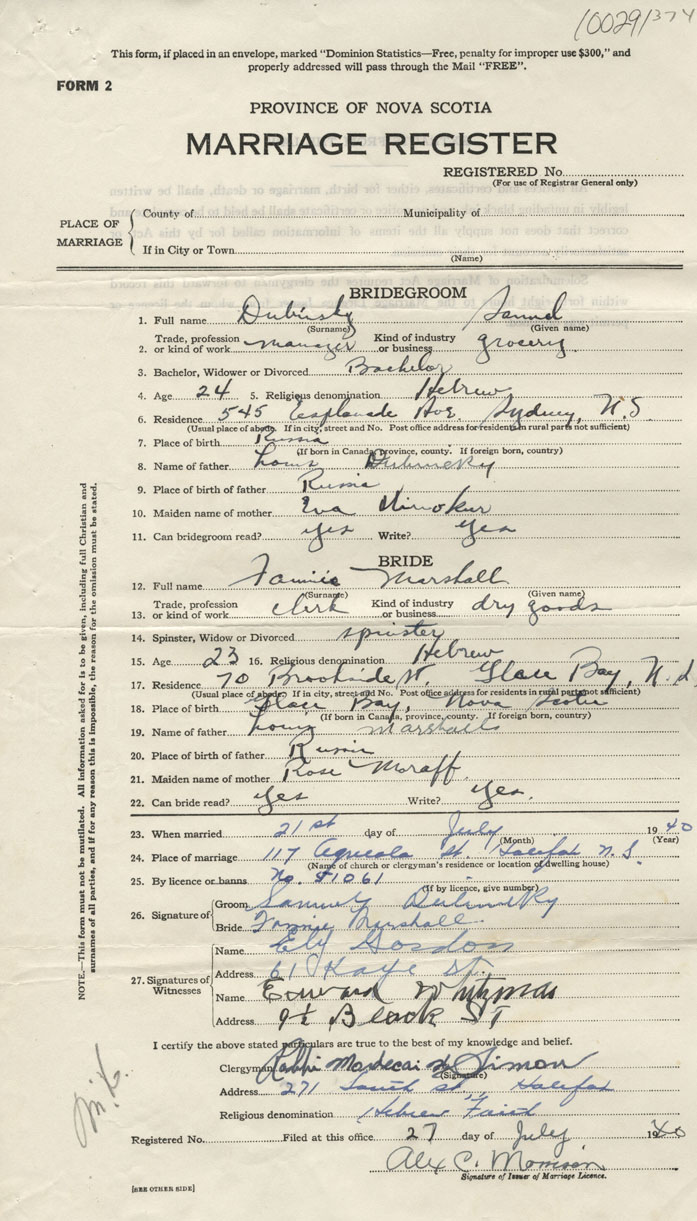 (0029)374
This form, if placed in an envelope, marked "Dominion Statistics—Free, penalty for improper use $300," and
properly addressed will pass through the Mail "FREE".
FORM 2
PROVINCE OF NOVA SCOTIA
MARRIAGE REGISTER
REGISTERED No.
(For use of Registrar General only)
PLACE OF MARRIAGE
County of Municipality of
If in City or Town
(Name)
BRIDEGROOM
1. Full name Dubinsky Samuel
(Surname) (Given name)
2. Trade, profession or kind of work manager Kind of industry or business grocery
3. Bachelor, Widower or Divorced Bachelor
4. Age 24 5. Religious denomination Hebrew
6. Residence 545 Esplanade Ave. Sydney, N.S
(Usual place of abode. If in city, street and No. Post office address for residents in rural parts not sufficient)
7. Place of birth Russia
(If born in Canada, province, county. If foreign born, country)
8. Name of father Louis Dubinsky
9. Place of birth of father Russia
10. Maiden name of mother Eva
11. Can bridegroom read? yes Write? yes
BRIDE
12. Full name Fannie Marshall
(Surname) (Given name)
13. Trade, profession or kind of work clerk Kind of industry or business dry goods
14. Spinster, Widow or Divorced spinster
15. Age 23 16. Religious denomination Hebrew
17. Residence 70 Brookside St. Glace Bay, N.S
(Usual place of abode. If in city, street and No. Post office address for residents in rural parts not sufficient)
18. Place of birth Glace Bay, Nova Scotia
(If born in Canada, province, county. If foreign born, country)
19. Name of father Louis Marshall
20. Place of birth of father Russia
21. Maiden name of mother Rose Moraff
22. Can bride read? Yes Write? Yes.
23. When married 21st day of July 1940
(Month) (Year)
24. Place of marriage 117 Agricola St. Halifax N.S.
(Name of church or clergyman's residence or location of dwelling house)
25. By licence or banns No. 51061
(If by licence, give number)
26. Signature of
Groom Samuel Dubinsky
Bride Fannie Marshall.
27. Signatures of Witnesses
Name Ely Gordon
Address 61 Kaye St.
Name Edward
Address 9½ Black ST
I certify the above stated particulars are true to the best of my knowledge and belief.
Clergyman Rabbi Mordecai Simon
(Signature)
Address 271 South St. Halifax
Religious denomination Hebrew Faith
Registered No. Filed at this office 27 day of July 1940
Alex C. Morrison
Signature of Issuer of Marriage Licence.
[SEE OTHER SIDE]
NOTE.—This form must not be mutilated. All information asked for is to be given, including full Christian and
surnames of all parties, and if for any reason this is impossible, the reason for the omission must be stated.